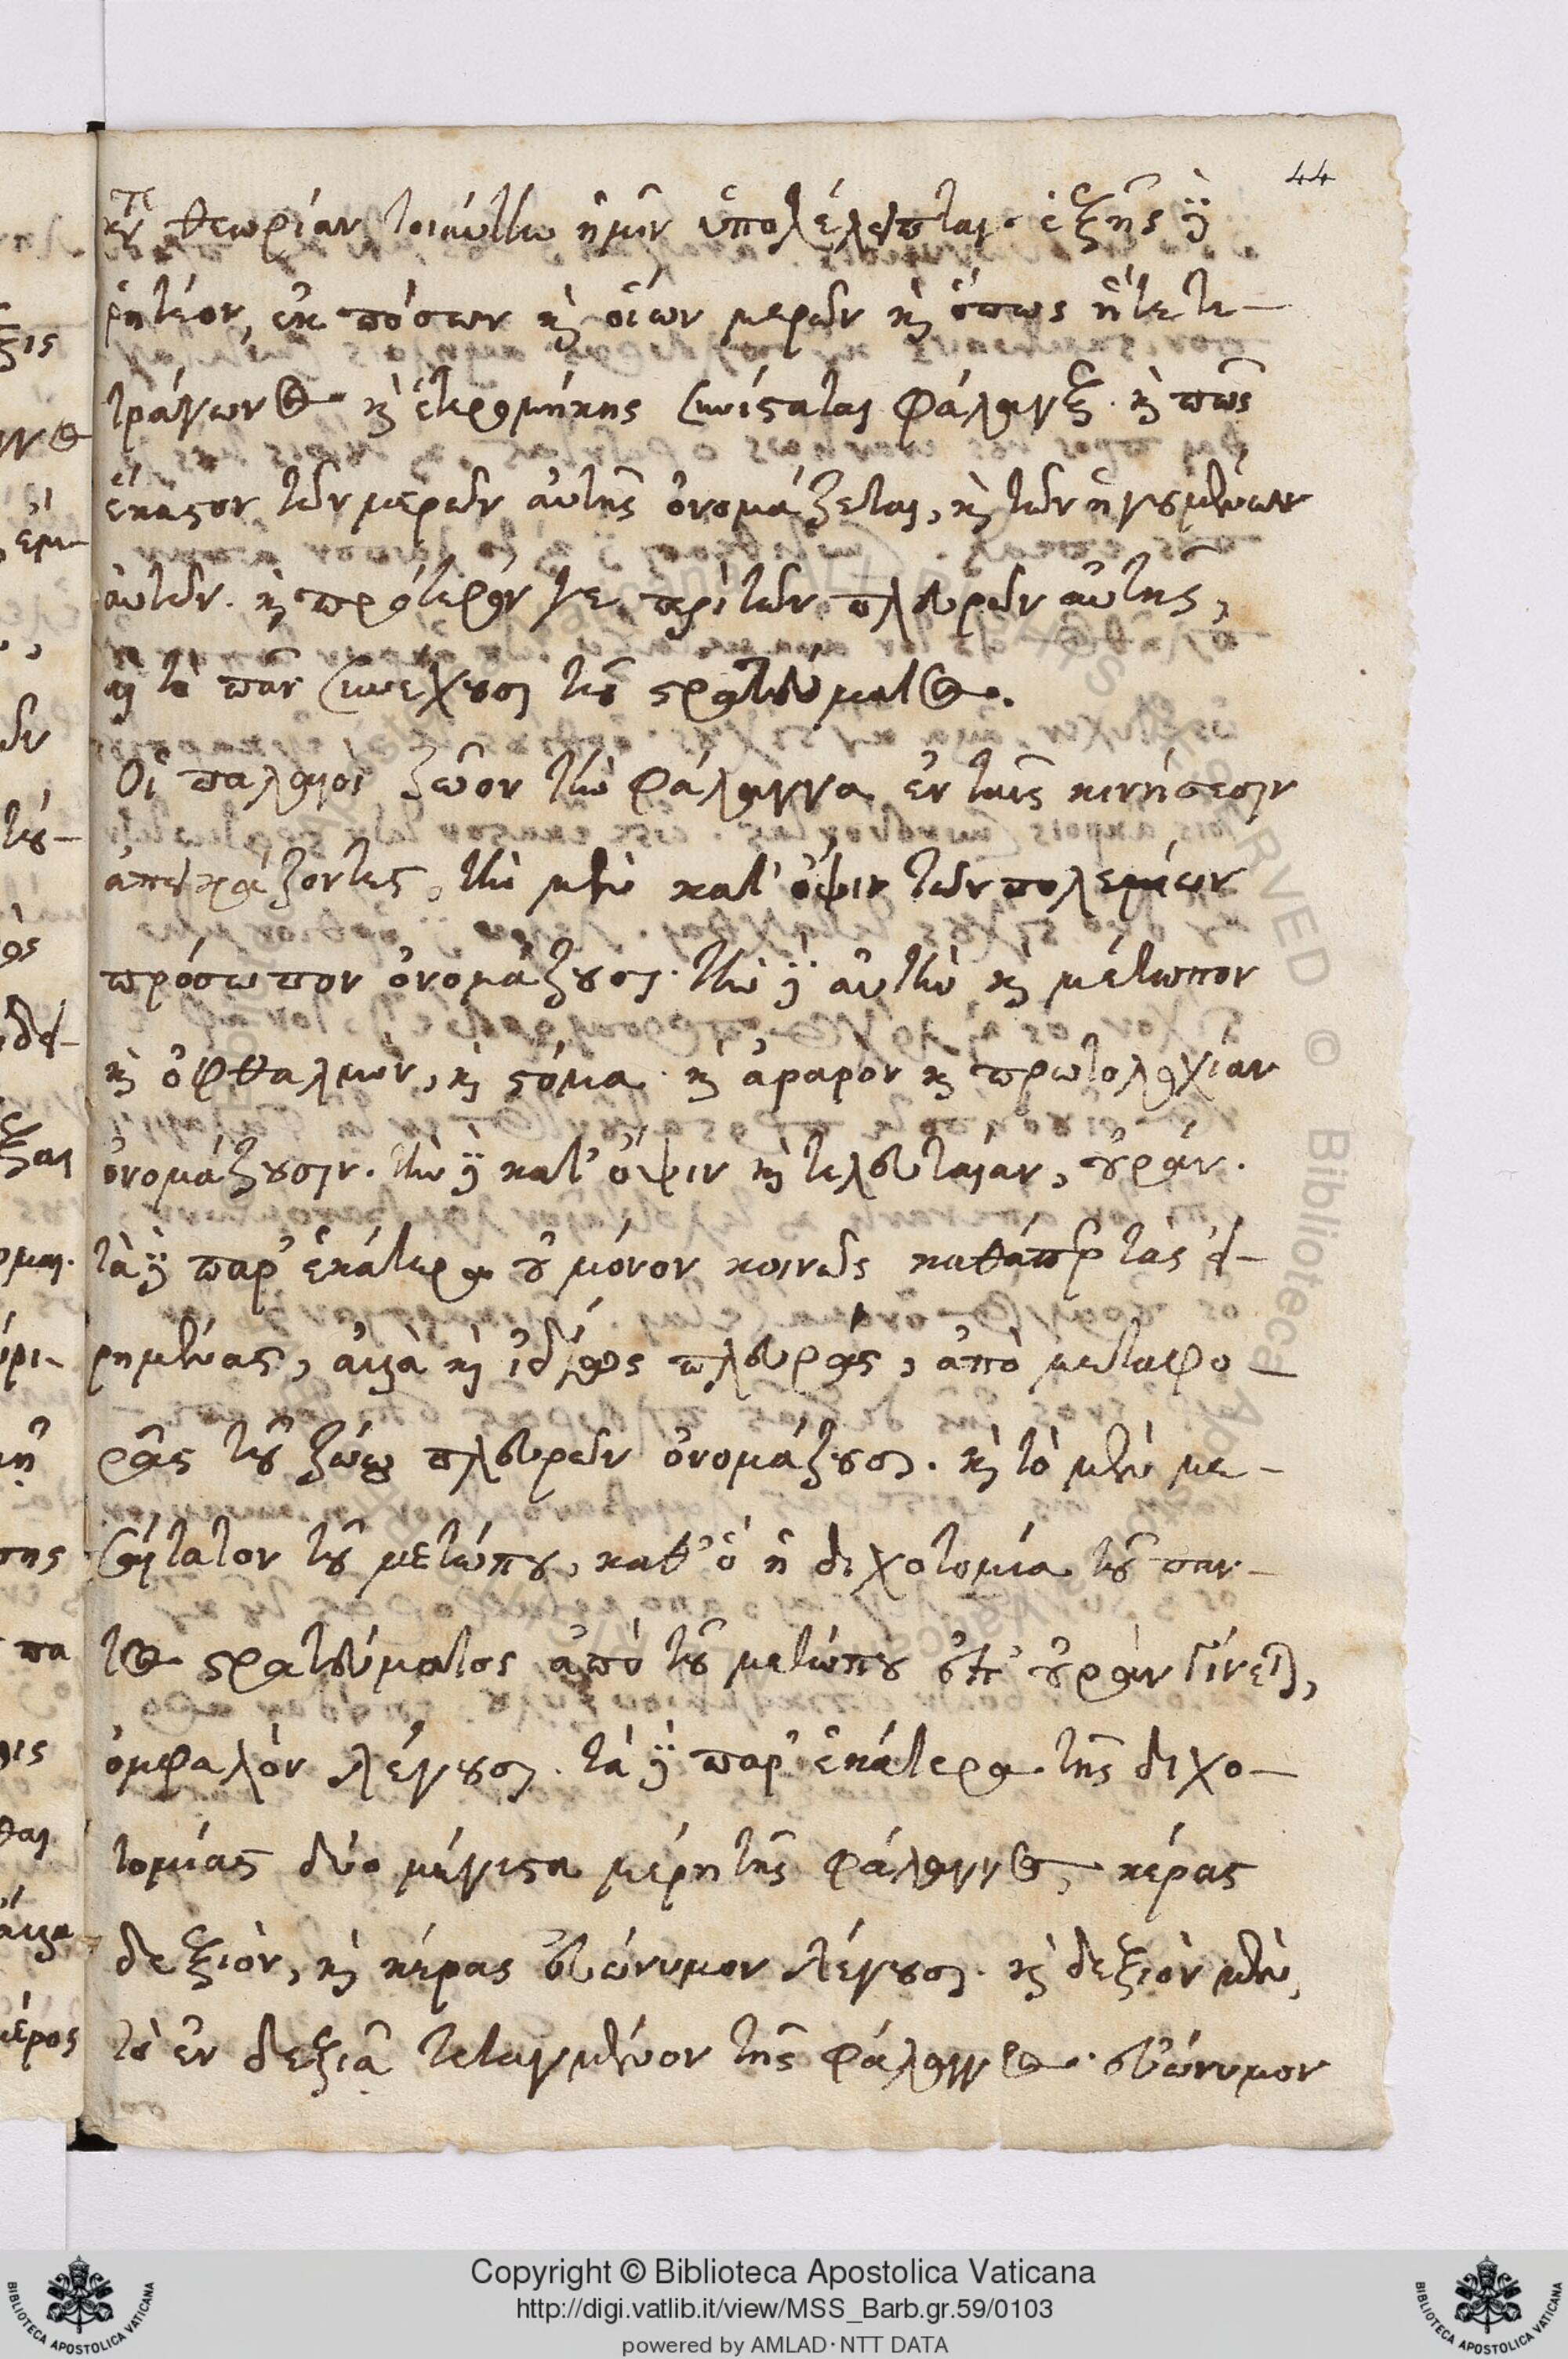 44
θεωρίαν τοιαύτην ἡμῖν ὑπολέλειπται· ἑξῆς δὲ
ῥητέον, ἐκ πόσων καὶ οἵων μερῶν καὶ ὅπως ἥ τε τε-
τράγωνος καὶ ἑτερομήκης συνίσταται φάλαγξ. καὶ πῶς
ἕκαστον τῶν μερῶν αὐτῆς ὀνομάζεται, καὶ τῶν ἡγουμένων
αὐτῶν. καὶ πρότερόν γε περὶ τῶν πλευρῶν αὐτῆς,
αἳ τὸ πᾶν συνέχουσι τοῦ στρατεύματος.
Οἱ παλαιοὶ ζῶον τὴν φάλαγγα ἐν ταῖς κινήσεσιν
ἀπεικάζοντες, τὴν μὲν κατ' ὄψιν τῶν πολεμίων
πρόσωπον ὀνομάζουσι. τὴν δὲ αὐτὴν καὶ μέτωπον
καὶ ὀφθαλμὸν, καὶ στόμα· καὶ ἄραρον καὶ πρωτολοχίαν
ὀνομάζουσιν. τὴν δὲ κατ' ὄψιν καὶ τελευταίαν, οὐράν.
τὰ δὲ παρ' ἑκάτερα οὐ μόνον κοινῶς καθάπερ τὰς εἰ-
ρημένας, ἀλλὰ καὶ ἰδίως πλευράς, ἀπὸ μεταφο-
ρᾶς τοῦ ζώου πλευρῶν ὀνομάζουσι. καὶ τὸ μὲν με-
σαίτατον τοῦ μετώπου, καθ' ὃ ἡ διχοτομία τοῦ παν-
τὸς στρατεύματος ἀπὸ τοῦ μετώπου ἐπ' οὐρὰν γίνεται,
ὀμφαλὸν λέγουσι. τὰ δὲ παρ' ἑκάτερα τῆς διχο-
τομίας δύο μέγιστα μέρη τῆς φάλαγγος, κέρας
δεξιὸν, καὶ κέρας εὐώνυμον λέγουσι. καὶ δεξιὸν μὲν,
τὸ ἐν δεξιᾷ τεταγμένον τῆς φάλαγγος· εὐώνυμον
Copyright © Biblioteca Apostolica Vaticana
http://digi.vatlib.it/view/MSS_Barb.gr.59/0103
powered by AMLAD·NTT DATA
BIBLIOTECA APOSTOLICA VATICANA
BIBLIOTECA APOSTOLICA VATICANA